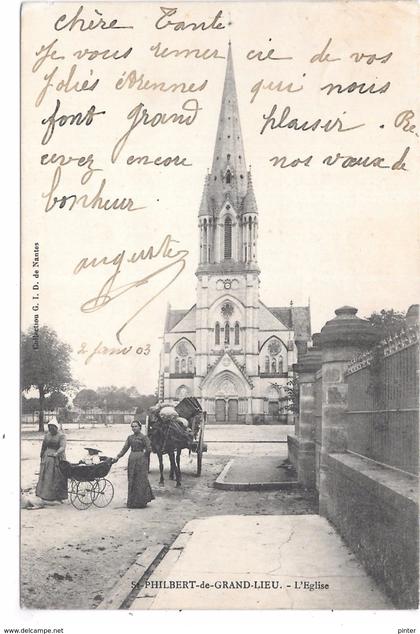 chère Tante
Je vous remercie de vos
Jolies étrennes qui nous
font grand plaisir. Re
cevez encore nos vœux de
bonheur.
auguste
2 janv 03
Collection G. I. D. de Nantes
St-PHILBERT-de-GRAND-LIEU. - L'Eglise
www.delcampe.net
pinter